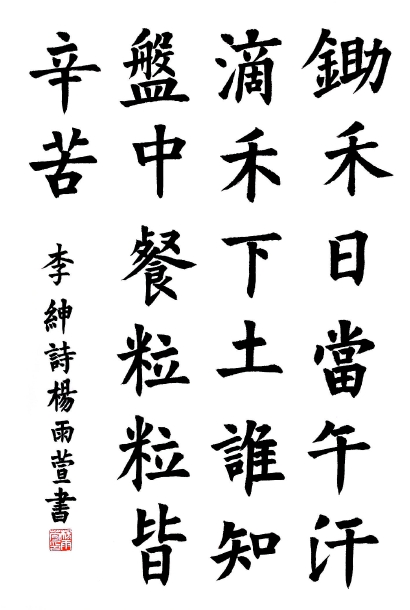 鋤禾日當午汗
滴禾下土誰知
盤中餐粒粒皆
辛苦
李紳詩楊雨萱書